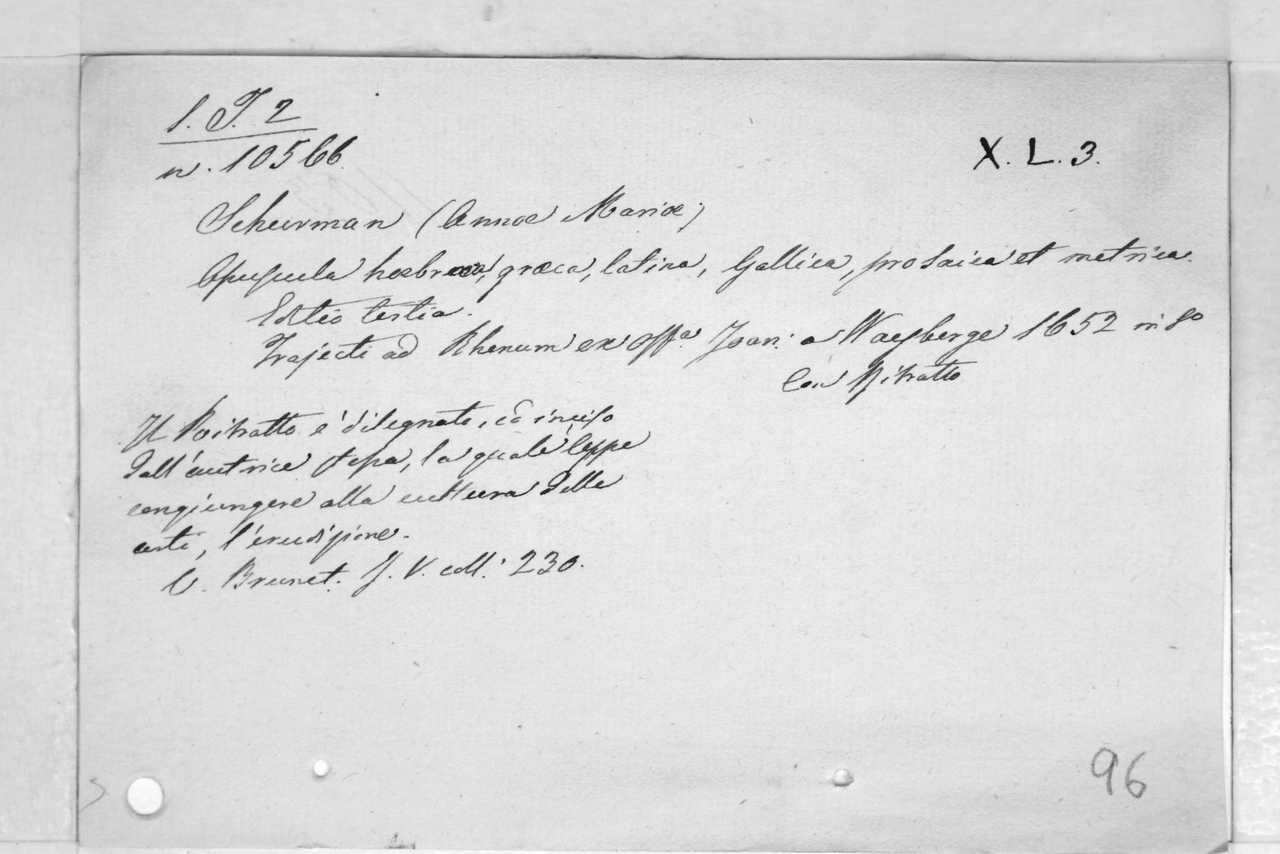 S. T. 2
n. 10566
X. L. 3.
Schurman (Annæ Mariæ)
Opuscula hœbræa, græca, latina, Gallica, prosaica et metrica.
Editio tertia.
Trajecti ad Rhenum ex offa Joan: a Waesberge 1652 in 8o
Con Ritratto
Il Ritratto è disegnato, ed inciso
dall'autrice stessa, la quale seppe
congiungere alla cultura delle
arti, l'erudizione.
V. Brunet. T. V. coll: 230.
96